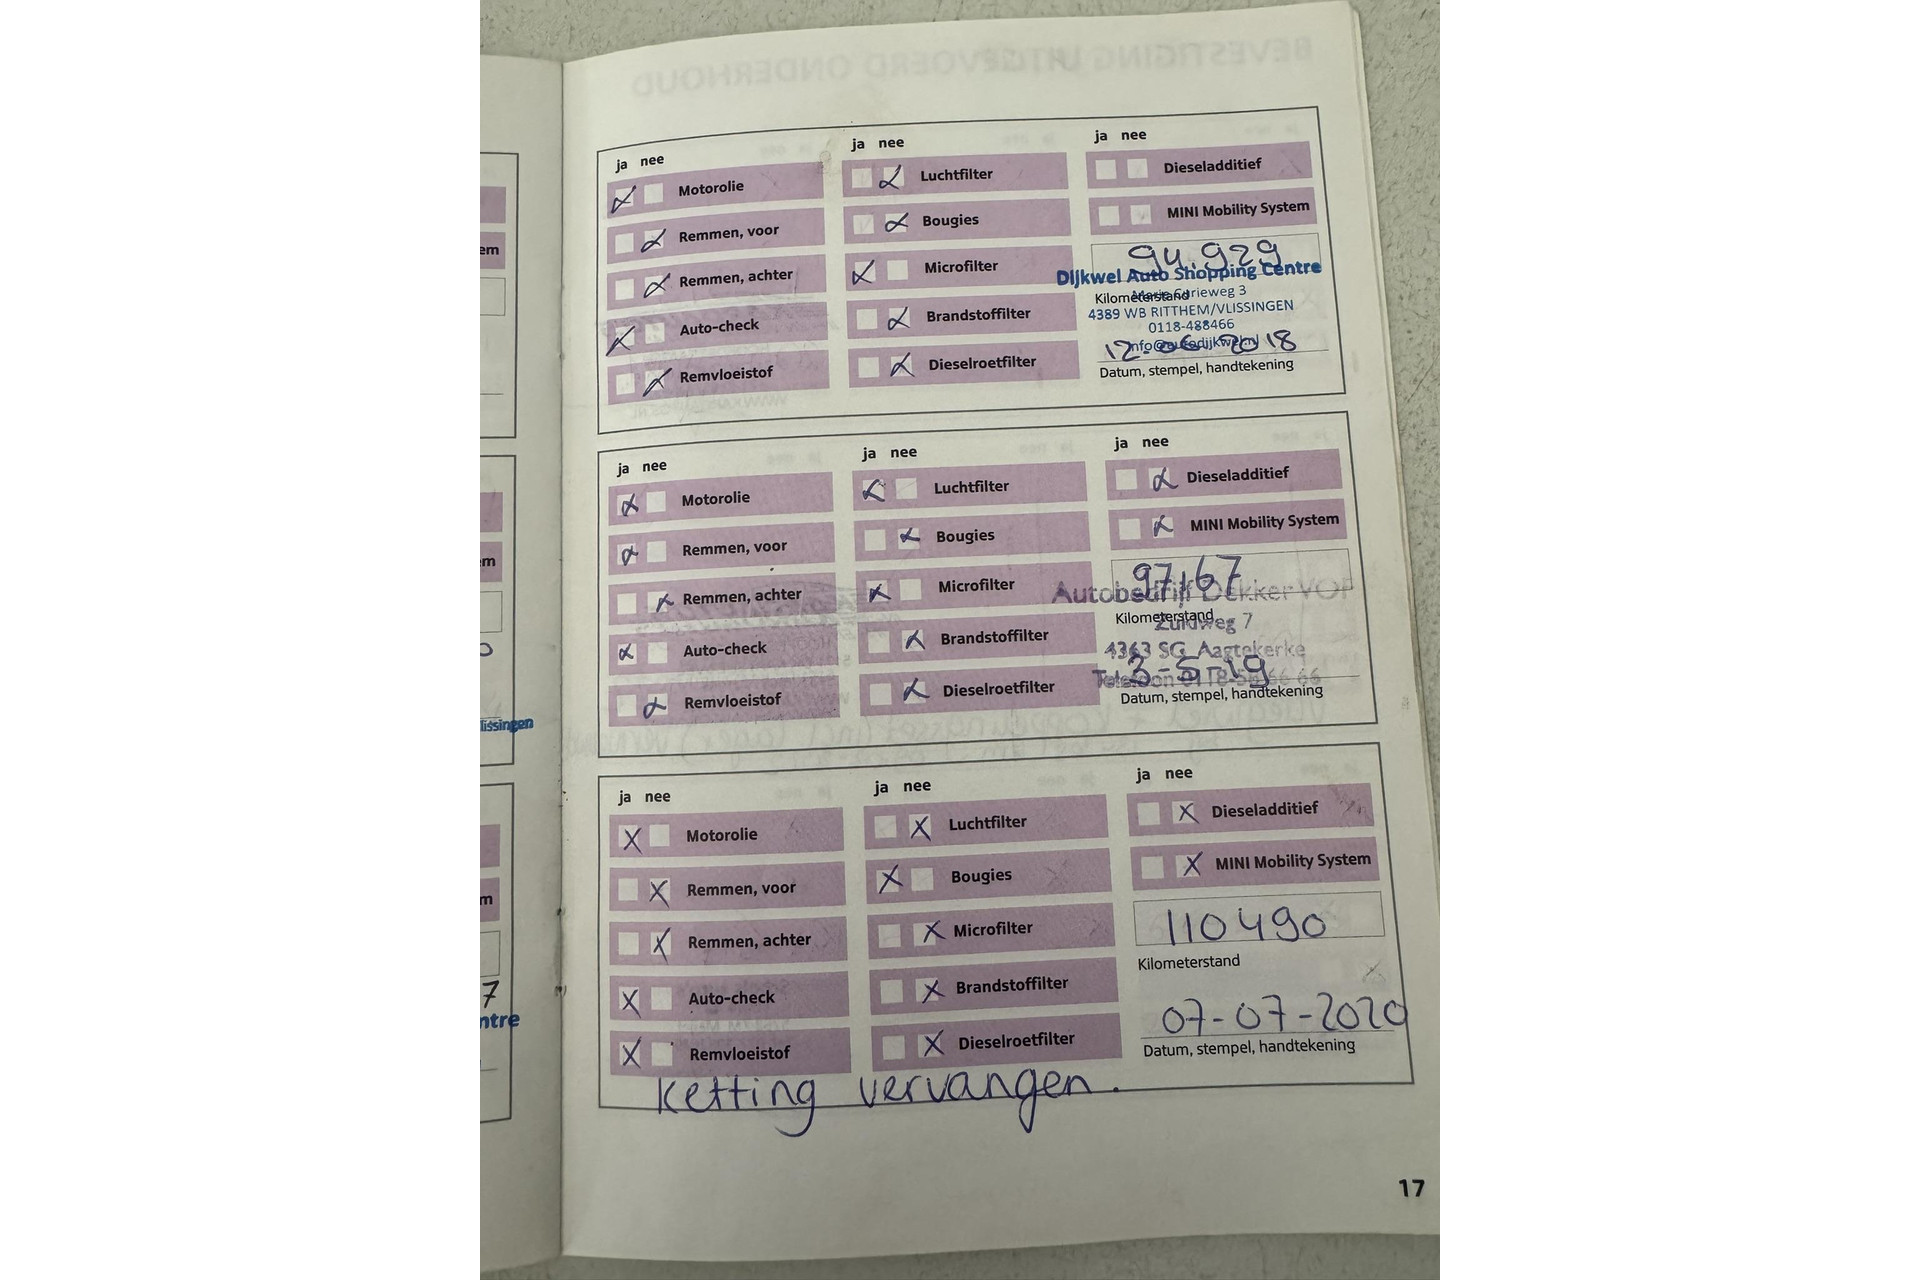 ja nee
Motorolie
Remmen, voor
Remmen, achter
Auto-check
Remvloeistof
ja nee
Luchtfilter
Bougies
Microfilter
Brandstoffilter
Dieselroetfilter
ja nee
Dieseladditief
MINI Mobility System
94.929
Dijkwel Auto Shopping Centre
Kilometerstand
Marie Curieweg 3
4389 WB RITTHEM/VLISSINGEN
0118-488466
info@autodijkwel.nl
12-06-2018
Datum, stempel, handtekening
ja nee
Motorolie
Remmen, voor
Remmen, achter
Auto-check
Remvloeistof
ja nee
Luchtfilter
Bougies
Microfilter
Brandstoffilter
Dieselroetfilter
ja nee
Dieseladditief
MINI Mobility System
97167
Autobedrijf Dekker VOF
Kilometerstand
Zuidweg 7
4363 SG Aagtekerke
3-5-19
Telefoon 0118-56 66 66
Datum, stempel, handtekening
ja nee
Motorolie
Remmen, voor
Remmen, achter
Auto-check
Remvloeistof
ja nee
Luchtfilter
Bougies
Microfilter
Brandstoffilter
Dieselroetfilter
ja nee
Dieseladditief
MINI Mobility System
110490
Kilometerstand
07-07-2020
Datum, stempel, handtekening
Ketting vervangen.
17
em
em
m
lissingen
7
ntre